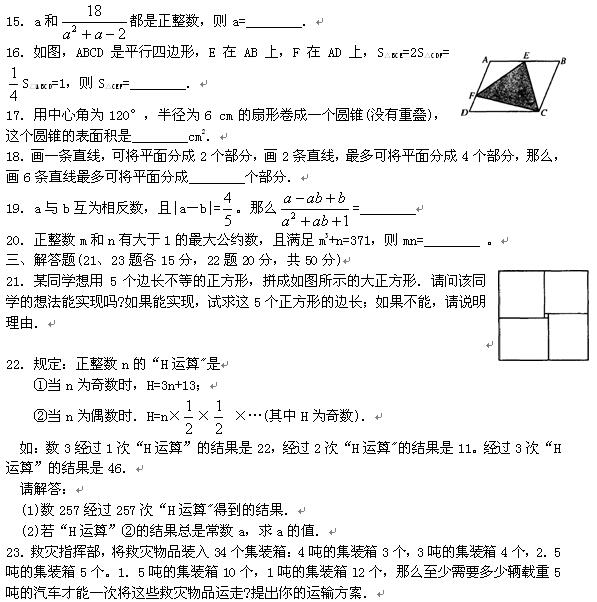 15. a和 18/(a²+a-2) 都是正整数，则a=________．
16. 如图，ABCD 是平行四边形，E 在 AB 上，F 在 AD 上，S△BCE=2S△CDF=
1/4 S△ABCD=1，则 S△CEF=________．
A E B
F
D C
17. 用中心角为120°，半径为6 cm的扇形卷成一个圆锥(没有重叠)，
这个圆锥的表面积是________cm²．
18. 画一条直线，可将平面分成2个部分，画2条直线，最多可将平面分成4个部分，那么，
画6条直线最多可将平面分成________个部分．
19. a与b互为相反数，且|a—b|=4/5。那么 (a-ab+b)/(a²+ab+1)=________
20. 正整数m和n有大于1的最大公约数，且满足m³+n=371，则mn=________ 。
三、解答题(21、23题各15分，22题20分，共50分)
21. 某同学想用5个边长不等的正方形，拼成如图所示的大正方形．请问该同
学的想法能实现吗?如果能实现，试求这5个正方形的边长；如果不能，请说明
理由．
22. 规定：正整数n的“H运算”是
①当n为奇数时，H=3n+13；
②当n为偶数时．H=n×1/2×1/2 ×…(其中H为奇数)．
如：数3经过1次“H运算”的结果是22，经过2次“H运算"的结果是11。经过3次“H
运算”的结果是46．
请解答：
(1)数257经过257次“H运算"得到的结果．
(2)若“H运算”②的结果总是常数a，求a的值．
23. 救灾指挥部，将救灾物品装入34个集装箱：4吨的集装箱3个，3吨的集装箱4个，2．5
吨的集装箱5个。1．5吨的集装箱10个，1吨的集装箱12个，那么至少需要多少辆载重5
吨的汽车才能一次将这些救灾物品运走?提出你的运输方案．